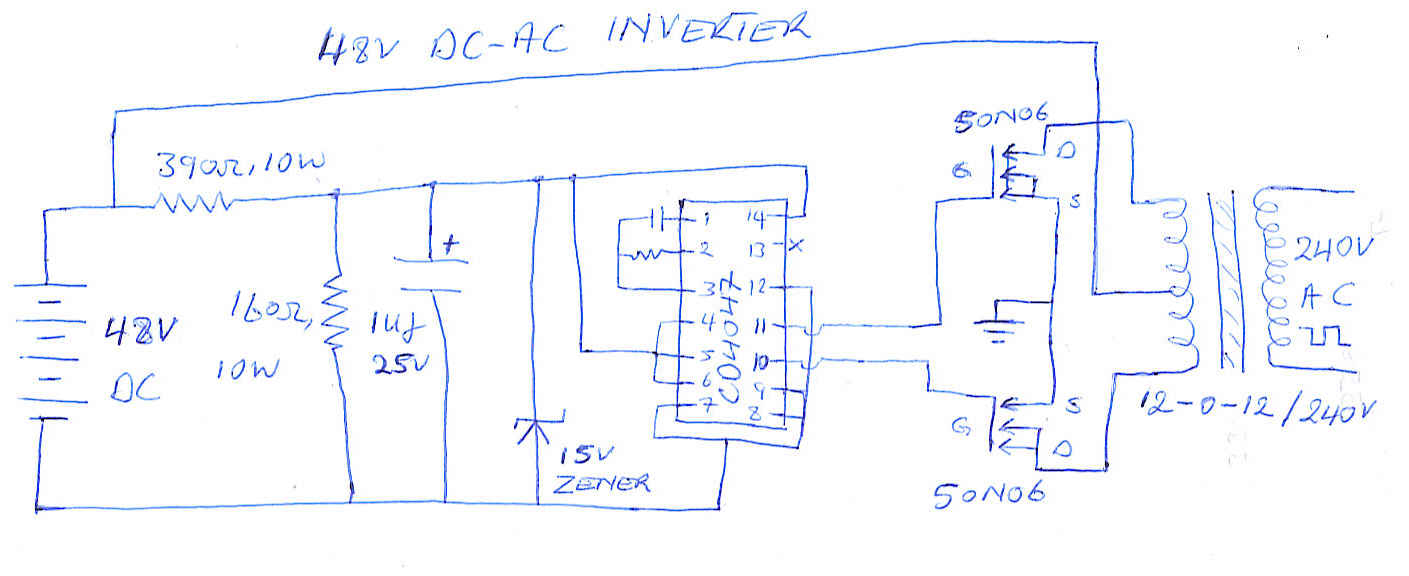 48V DC-AC INVERTER
50N06
390Ω, 10W
D
G
S
1 14
2 13 X
3 12
4 11
5 10
6 9
7 8
CD4047
+
48V
DC
160Ω,
10W
1uf
25V
15V
ZENER
240V
AC
12-0-12/240V
S
G
D
50N06